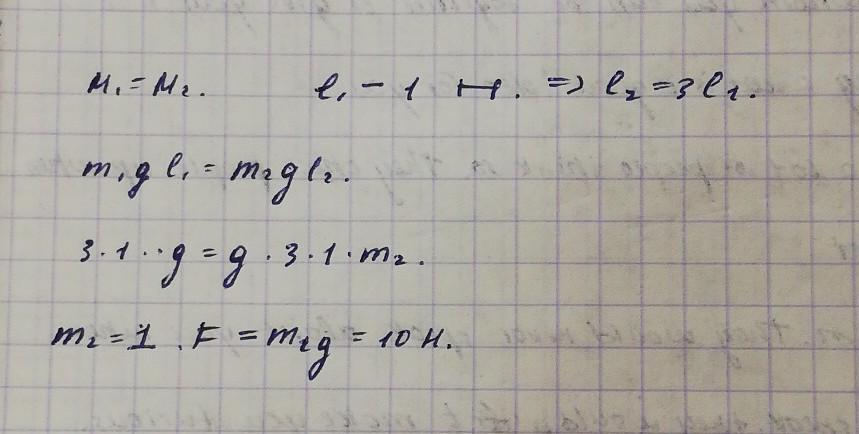 M₁ = M₂. l₁ – 1 |–|. => l₂ = 3 l₁.
m₁ g l₁ = m₂ g l₂.
3 · 1 · · g = g · 3 · 1 · m₂.
m₂ = 1. F = m₂ g = 10 Н.